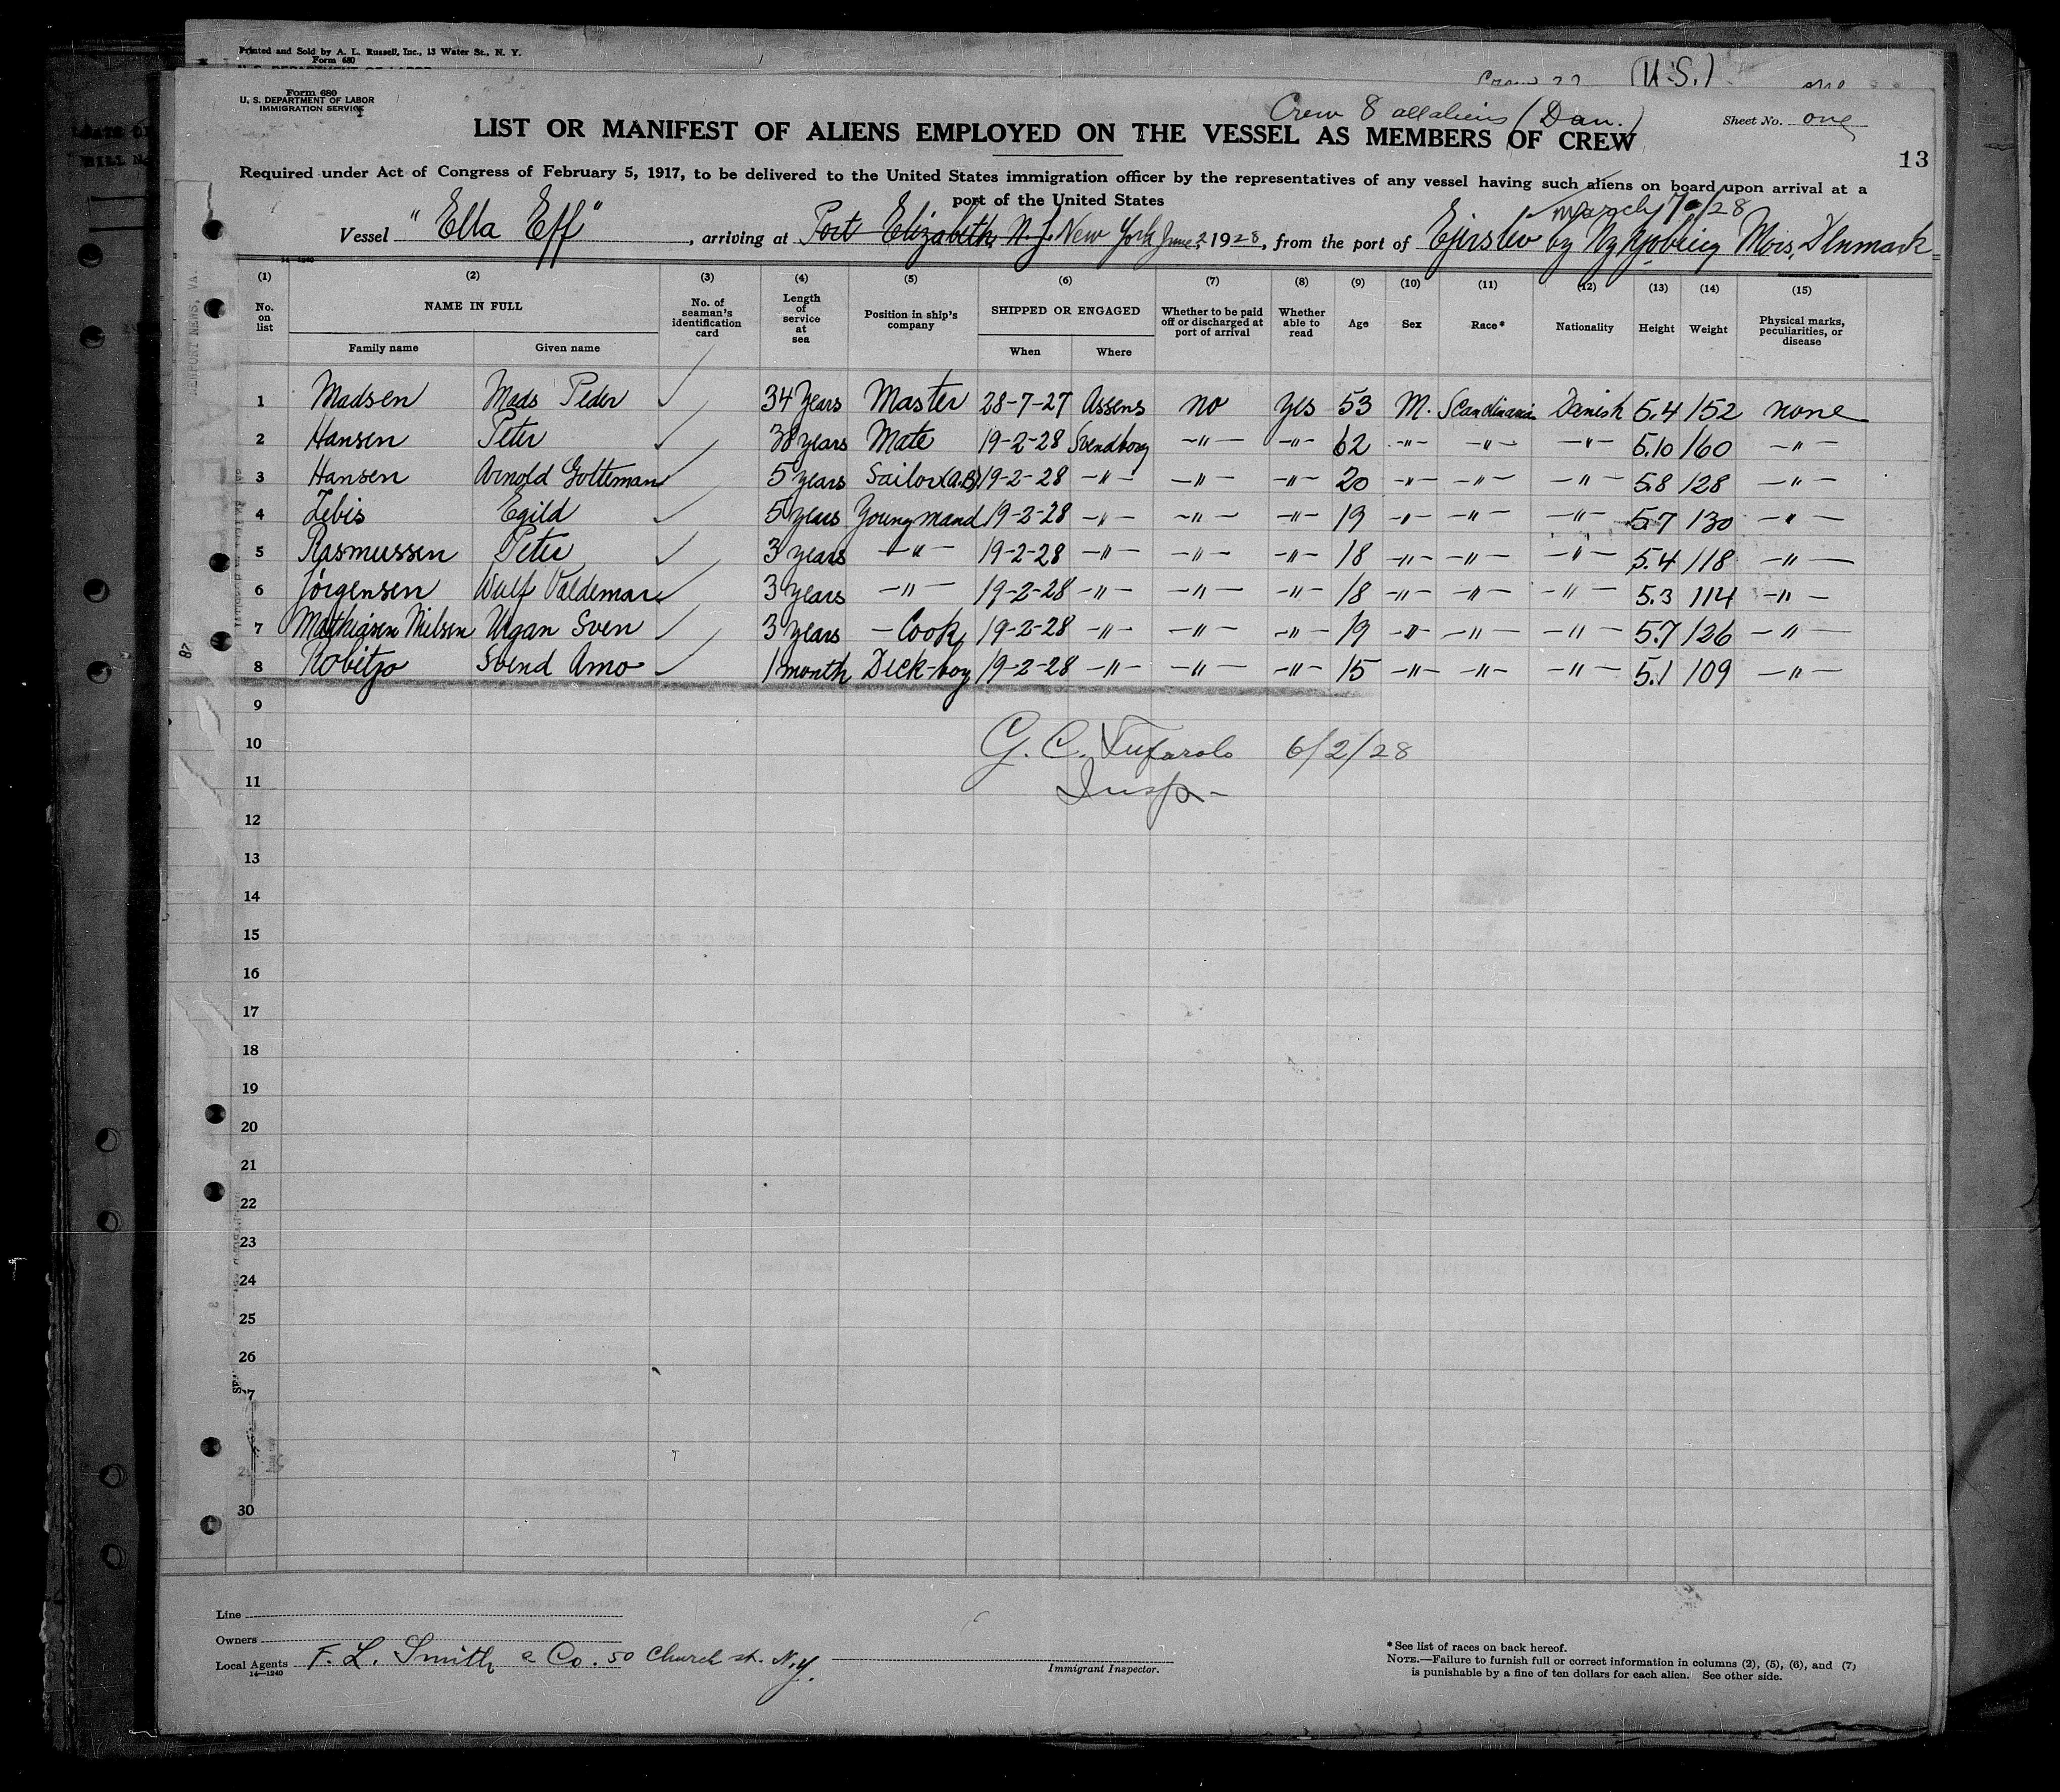 Printed and Sold by A. L. Russell, Inc., 13 Water St., N. Y.
Form 680
(U.S.)
Form 680
U. S. DEPARTMENT OF LABOR
IMMIGRATION SERVICE
Crew 8 all aliens (Dan.)
Sheet No. one
LIST OR MANIFEST OF ALIENS EMPLOYED ON THE VESSEL AS MEMBERS OF CREW
13
Required under Act of Congress of February 5, 1917, to be delivered to the United States immigration officer by the representatives of any vessel having such aliens on board upon arrival at a
port of the United States
March 7/28
Vessel "Ella Eff", arriving at Port Elizabeth, N. J. New York June 2 1928, from the port of Ejerslev by Nykjobing Mors, Denmark
14-1240
(1) (2) (3) (4) (5) (6) (7) (8) (9) (10) (11) (12) (13) (14) (15)
No. on list NAME IN FULL No. of seaman's identification card Length of service at sea Position in ship's company SHIPPED OR ENGAGED Whether to be paid off or discharged at port of arrival Whether able to read Age Sex Race* Nationality Height Weight Physical marks, peculiarities, or disease
Family name Given name When Where
1 Madsen Mads Peder 34 Years Master 28-7-27 Assens no yes 53 M. Scandinavia Danish 5.4 152 none
2 Hansen Peter 38 years Mate 19-2-28 Svendborg -"- -"- 62 -"- -"- -"- 5.10 160 -"-
3 Hansen Arnold Golteman 5 years Sailor (A.B) 19-2-28 -"- -"- -"- 20 -"- -"- -"- 5.8 128 -"-
4 Zebis Egild 5 years Youngmand 19-2-28 -"- -"- -"- 19 -"- -"- -"- 5.7 130 -"-
5 Rasmussen Peter 3 years -"- 19-2-28 -"- -"- -"- 18 -"- -"- -"- 5.4 118 -"-
6 Jörgensen Walf Valdemar 3 years -"- 19-2-28 -"- -"- -"- 18 -"- -"- -"- 5.3 114 -"-
7 Mathiasen Nielsen Urgan Sven 3 years - Cook 19-2-28 -"- -"- -"- 19 -"- -"- -"- 5.7 126 -"-
8 Kobitzo Svend Arno 1 month Deck-boy 19-2-28 -"- -"- -"- 15 -"- -"- -"- 5.1 109 -"-
9
10 G. C. 6/2/28
11 Insp-
12
13
14
15
16
17
18
19
20
21
22
23
24
25
26
7
2
30
Line
Owners
Local Agents F. L. Smith & Co. 50 Church st. N.y.
14-1240
Immigrant Inspector.
*See list of races on back hereof.
NOTE.—Failure to furnish full or correct information in columns (2), (5), (6), and (7)
is punishable by a fine of ten dollars for each alien. See other side.